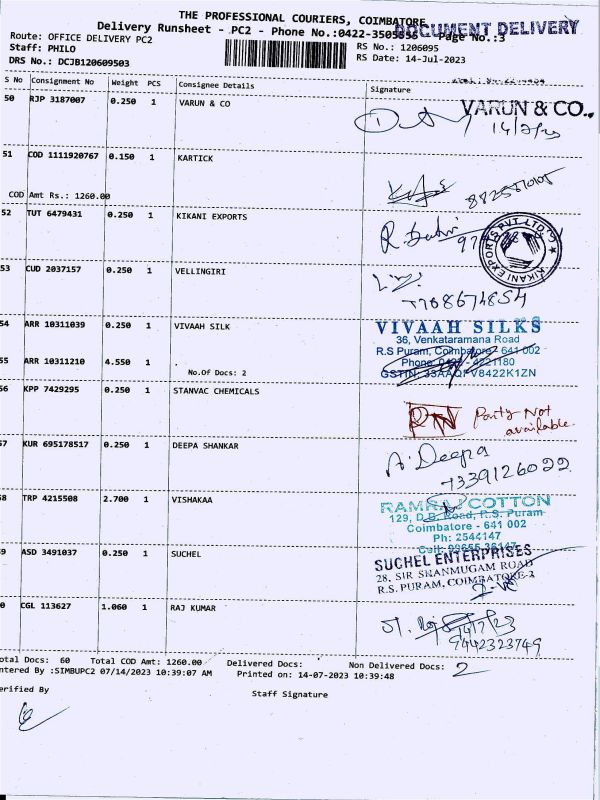 THE PROFESSIONAL COURIERS, COIMBATORE
Delivery Runsheet - PC2 - Phone No.:0422-3505556 Page No.:3
DOCUMENT DELIVERY
Route: OFFICE DELIVERY PC2
Staff: PHILO
DRS No.: DCJB120609503
RS No.: 1206095
RS Date: 14-Jul-2023
S No Consignment No Weight PCS Consignee Details Signature
50 RJP 3187007 0.250 1 VARUN & CO
VARUN & CO.,
51 COD 1111920767 0.150 1 KARTICK
COD Amt Rs.: 1260.00
52 TUT 6479431 0.250 1 KIKANI EXPORTS
KIKANI EXPORTS PVT LTD
53 CUD 2037157 0.250 1 VELLINGIRI
54 ARR 10311039 0.250 1 VIVAAH SILK
VIVAAH SILKS
36, Venkataramana Road
R.S Puram, Coimbatore - 641 002
Phone: 0422 - 4221180
55 ARR 10311210 4.550 1
No.Of Docs: 2
56 KPP 7429295 0.250 1 STANVAC CHEMICALS
Party Not
available.
57 KUR 695178517 0.250 1 DEEPA SHANKAR
A. Deepa
7339126022
58 TRP 4215508 2.700 1 VISHAKAA
RAMRAJ COTTON
129, D.B. Road, R.S. Puram
Coimbatore - 641 002
Ph: 2544147
59 ASD 3491037 0.250 1 SUCHEL
SUCHEL ENTERPRISES
28, SIR SHANMUGAM ROAD
R.S. PURAM, COIMBATORE-2
60 CGL 113627 1.060 1 RAJ KUMAR
9442323749
Total Docs: 60 Total COD Amt: 1260.00 Delivered Docs: Non Delivered Docs: 2
Entered By :SIMBUPC2 07/14/2023 10:39:07 AM Printed on: 14-07-2023 10:39:48
Verified By Staff Signature